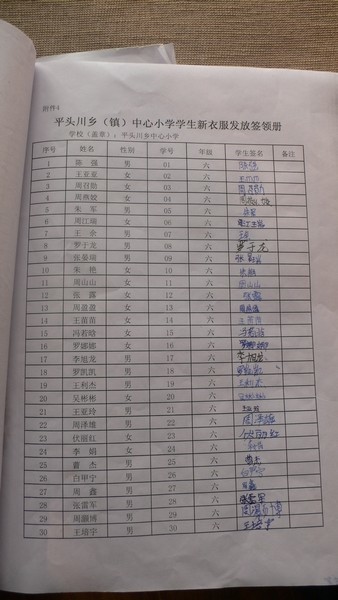 附件4
平头川乡（镇）中心小学学生新衣服发放签领册
学校（盖章）：平头川乡中心小学
序号 姓名 性别 学号 年级 学生签名 备注
1 陈强 男 01 六
2 王亚亚 女 02 六
3 周召勋 男 03 六
4 周燕姣 女 04 六
5 朱军 男 05 六
6 周江瑞 女 06 六
7 王余 男 07 六
8 罗于龙 男 08 六 罗于龙
9 张晏瑞 男 09 六
10 朱艳 女 10 六
11 周山山 女 11 六 周山山
12 张露 女 12 六 张露
13 周盈盈 女 13 六
14 王苗苗 女 14 六
15 冯若晗 女 15 六
16 罗娜娜 女 16 六
17 李旭龙 男 17 六
18 罗凯凯 男 18 六
19 王利杰 男 19 六 王利杰
20 吴彬彬 女 20 六
21 王亚玲 男 21 六
22 周泽雄 男 22 六 周泽雄
23 伏丽红 女 23 六
24 李娟 女 24 六
25 曹杰 男 25 六 曹杰
26 白甲宁 男 26 六
27 周鑫 男 27 六 周鑫
28 张雷军 男 28 六
29 周灏博 男 29 六
30 王培宇 男 30 六 王培宇